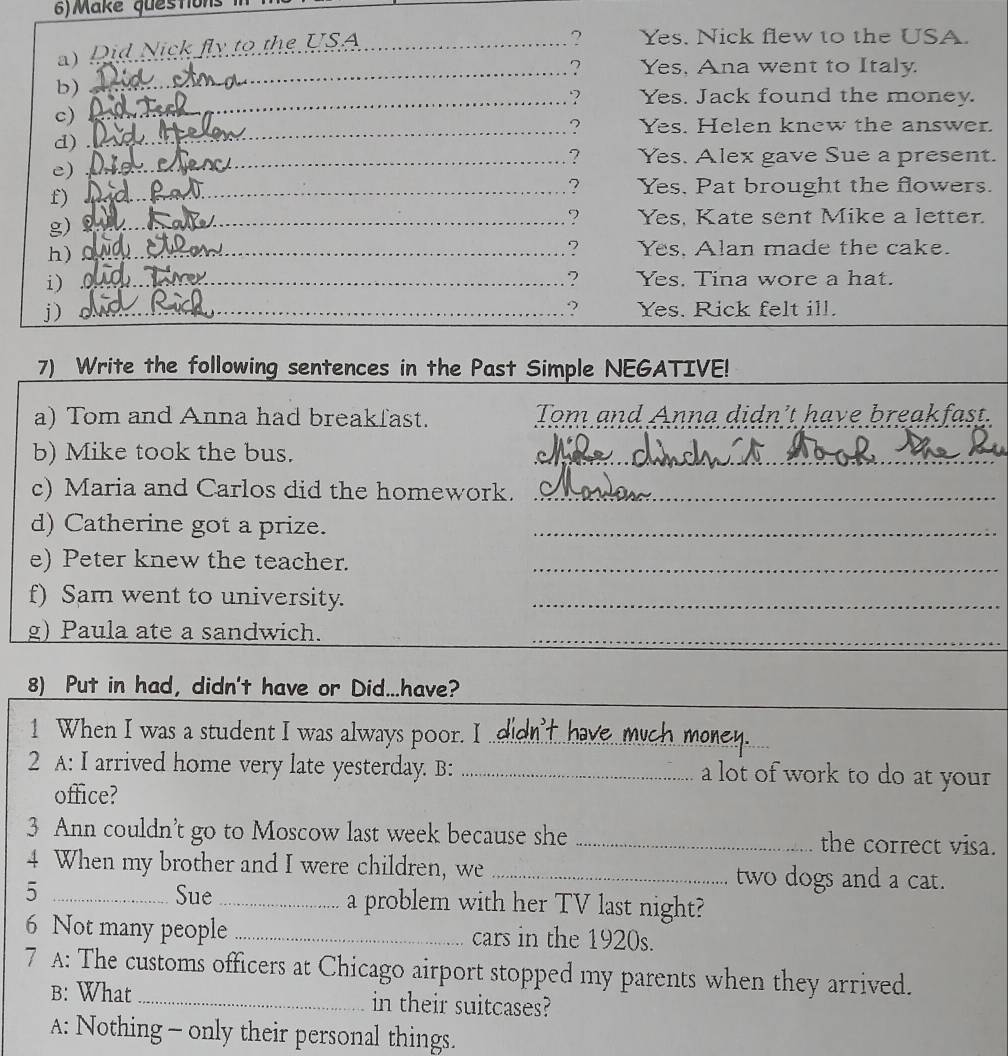 6) Make questions in
a) Did Nick fly to the USA ? Yes. Nick flew to the USA.
b) Did Ana ? Yes, Ana went to Italy.
c) Did ? Yes. Jack found the money.
d) Did ? Yes. Helen knew the answer.
e) Did ? Yes. Alex gave Sue a present.
f) Did Pat ? Yes, Pat brought the flowers.
g) did Kate ? Yes, Kate sent Mike a letter.
h) did ? Yes, Alan made the cake.
i) did ? Yes. Tina wore a hat.
j) did Rick ? Yes. Rick felt ill.
7) Write the following sentences in the Past Simple NEGATIVE!
a) Tom and Anna had breakfast. Tom and Anna didn't have breakfast.
b) Mike took the bus. Mike dindn't took the Bu
c) Maria and Carlos did the homework.
d) Catherine got a prize.
e) Peter knew the teacher.
f) Sam went to university.
g) Paula ate a sandwich.
8) Put in had, didn't have or Did...have?
1 When I was a student I was always poor. I didn't have much money.
2 A: I arrived home very late yesterday. B: a lot of work to do at your
office?
3 Ann couldn't go to Moscow last week because she the correct visa.
4 When my brother and I were children, we two dogs and a cat.
5 Sue a problem with her TV last night?
6 Not many people cars in the 1920s.
7 A: The customs officers at Chicago airport stopped my parents when they arrived.
B: What in their suitcases?
A: Nothing – only their personal things.